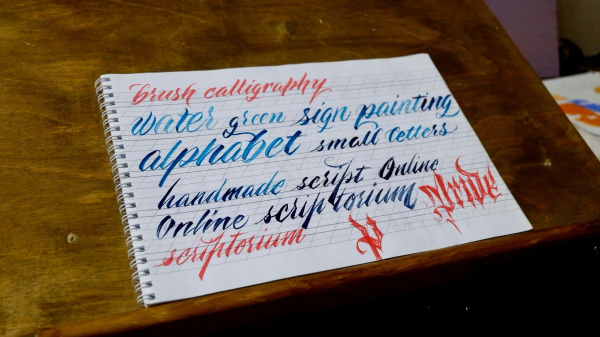 brush calligraphy
water green sign painting
alphabet small letters
handmade script Online
Online scriptorium
scriptorium p